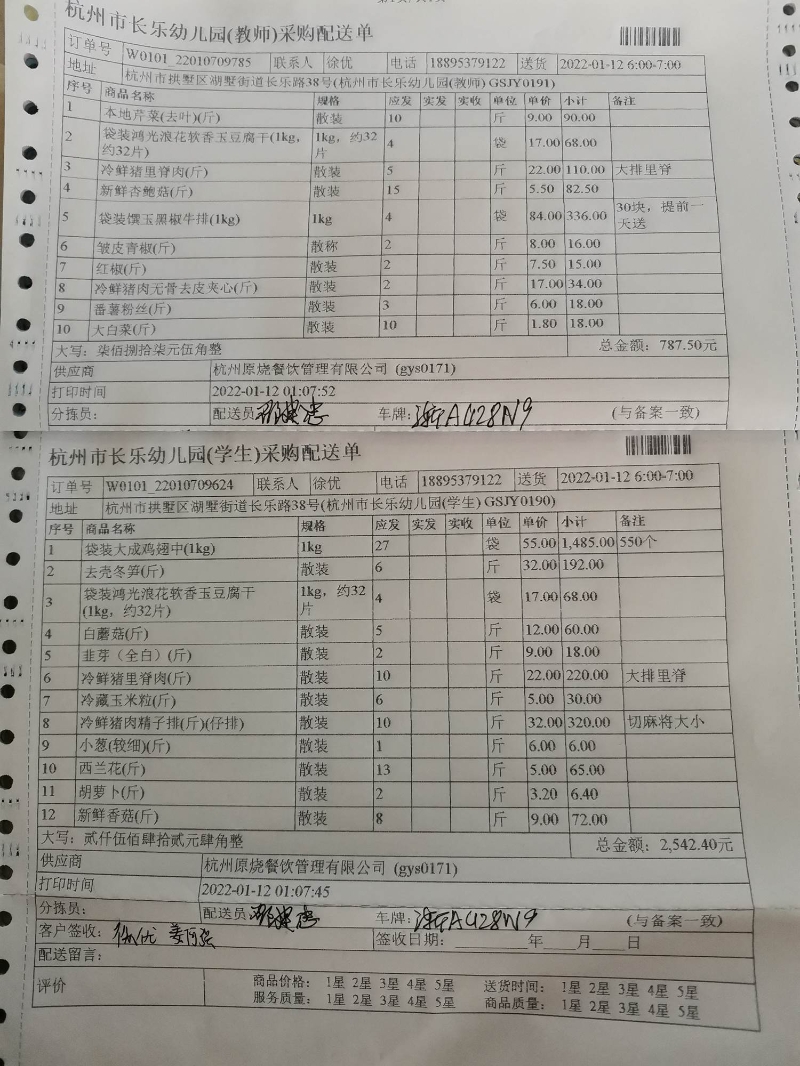 杭州市长乐幼儿园(教师)采购配送单
订单号 W0101_22010709785 联系人 徐优 电话 18895379122 送货 2022-01-12 6:00-7:00
地址 杭州市拱墅区湖墅街道长乐路38号(杭州市长乐幼儿园(教师) GSJY0191)
序号 商品名称 规格 应发 实发 实收 单位 单价 小计 备注
1 本地芹菜(去叶)(斤) 散装 10 斤 9.00 90.00
2 袋装鸿光浪花软香玉豆腐干(1kg,约32片) 1kg,约32片 4 袋 17.00 68.00
3 冷鲜猪里脊肉(斤) 散装 5 斤 22.00 110.00 大排里脊
4 新鲜杏鲍菇(斤) 散装 15 斤 5.50 82.50
5 袋装馔玉黑椒牛排(1kg) 1kg 4 袋 84.00 336.00 30块,提前一天送
6 皱皮青椒(斤) 散称 2 斤 8.00 16.00
7 红椒(斤) 散装 2 斤 7.50 15.00
8 冷鲜猪肉无骨去皮夹心(斤) 散装 2 斤 17.00 34.00
9 番薯粉丝(斤) 散装 3 斤 6.00 18.00
10 大白菜(斤) 散装 10 斤 1.80 18.00
大写:柒佰捌拾柒元伍角整 总金额:787.50元
供应商 杭州原烧餐饮管理有限公司 (gys0171)
打印时间 2022-01-12 01:07:52
分拣员: 配送员: 车牌:浙A428N9 (与备案一致)
杭州市长乐幼儿园(学生)采购配送单
订单号 W0101_22010709624 联系人 徐优 电话 18895379122 送货 2022-01-12 6:00-7:00
地址 杭州市拱墅区湖墅街道长乐路38号(杭州市长乐幼儿园(学生) GSJY0190)
序号 商品名称 规格 应发 实发 实收 单位 单价 小计 备注
1 袋装大成鸡翅中(1kg) 1kg 27 袋 55.00 1,485.00 550个
2 去壳冬笋(斤) 散装 6 斤 32.00 192.00
3 袋装鸿光浪花软香玉豆腐干(1kg,约32片) 1kg,约32片 4 袋 17.00 68.00
4 白蘑菇(斤) 散装 5 斤 12.00 60.00
5 韭芽(全白)(斤) 散装 2 斤 9.00 18.00
6 冷鲜猪里脊肉(斤) 散装 10 斤 22.00 220.00 大排里脊
7 冷藏玉米粒(斤) 散装 6 斤 5.00 30.00
8 冷鲜猪肉精子排(斤)(仔排) 散装 10 斤 32.00 320.00 切麻将大小
9 小葱(较细)(斤) 散装 1 斤 6.00 6.00
10 西兰花(斤) 散装 13 斤 5.00 65.00
11 胡萝卜(斤) 散装 2 斤 3.20 6.40
12 新鲜香菇(斤) 散装 8 斤 9.00 72.00
大写:贰仟伍佰肆拾贰元肆角整 总金额:2,542.40元
供应商 杭州原烧餐饮管理有限公司 (gys0171)
打印时间 2022-01-12 01:07:45
分拣员: 配送员: 车牌:浙A428N9 (与备案一致)
客户签收:徐优 签收日期:________年____月____日
配送留言:
评价 商品价格: 1星 2星 3星 4星 5星 送货时间: 1星 2星 3星 4星 5星
服务质量: 1星 2星 3星 4星 5星 商品质量: 1星 2星 3星 4星 5星